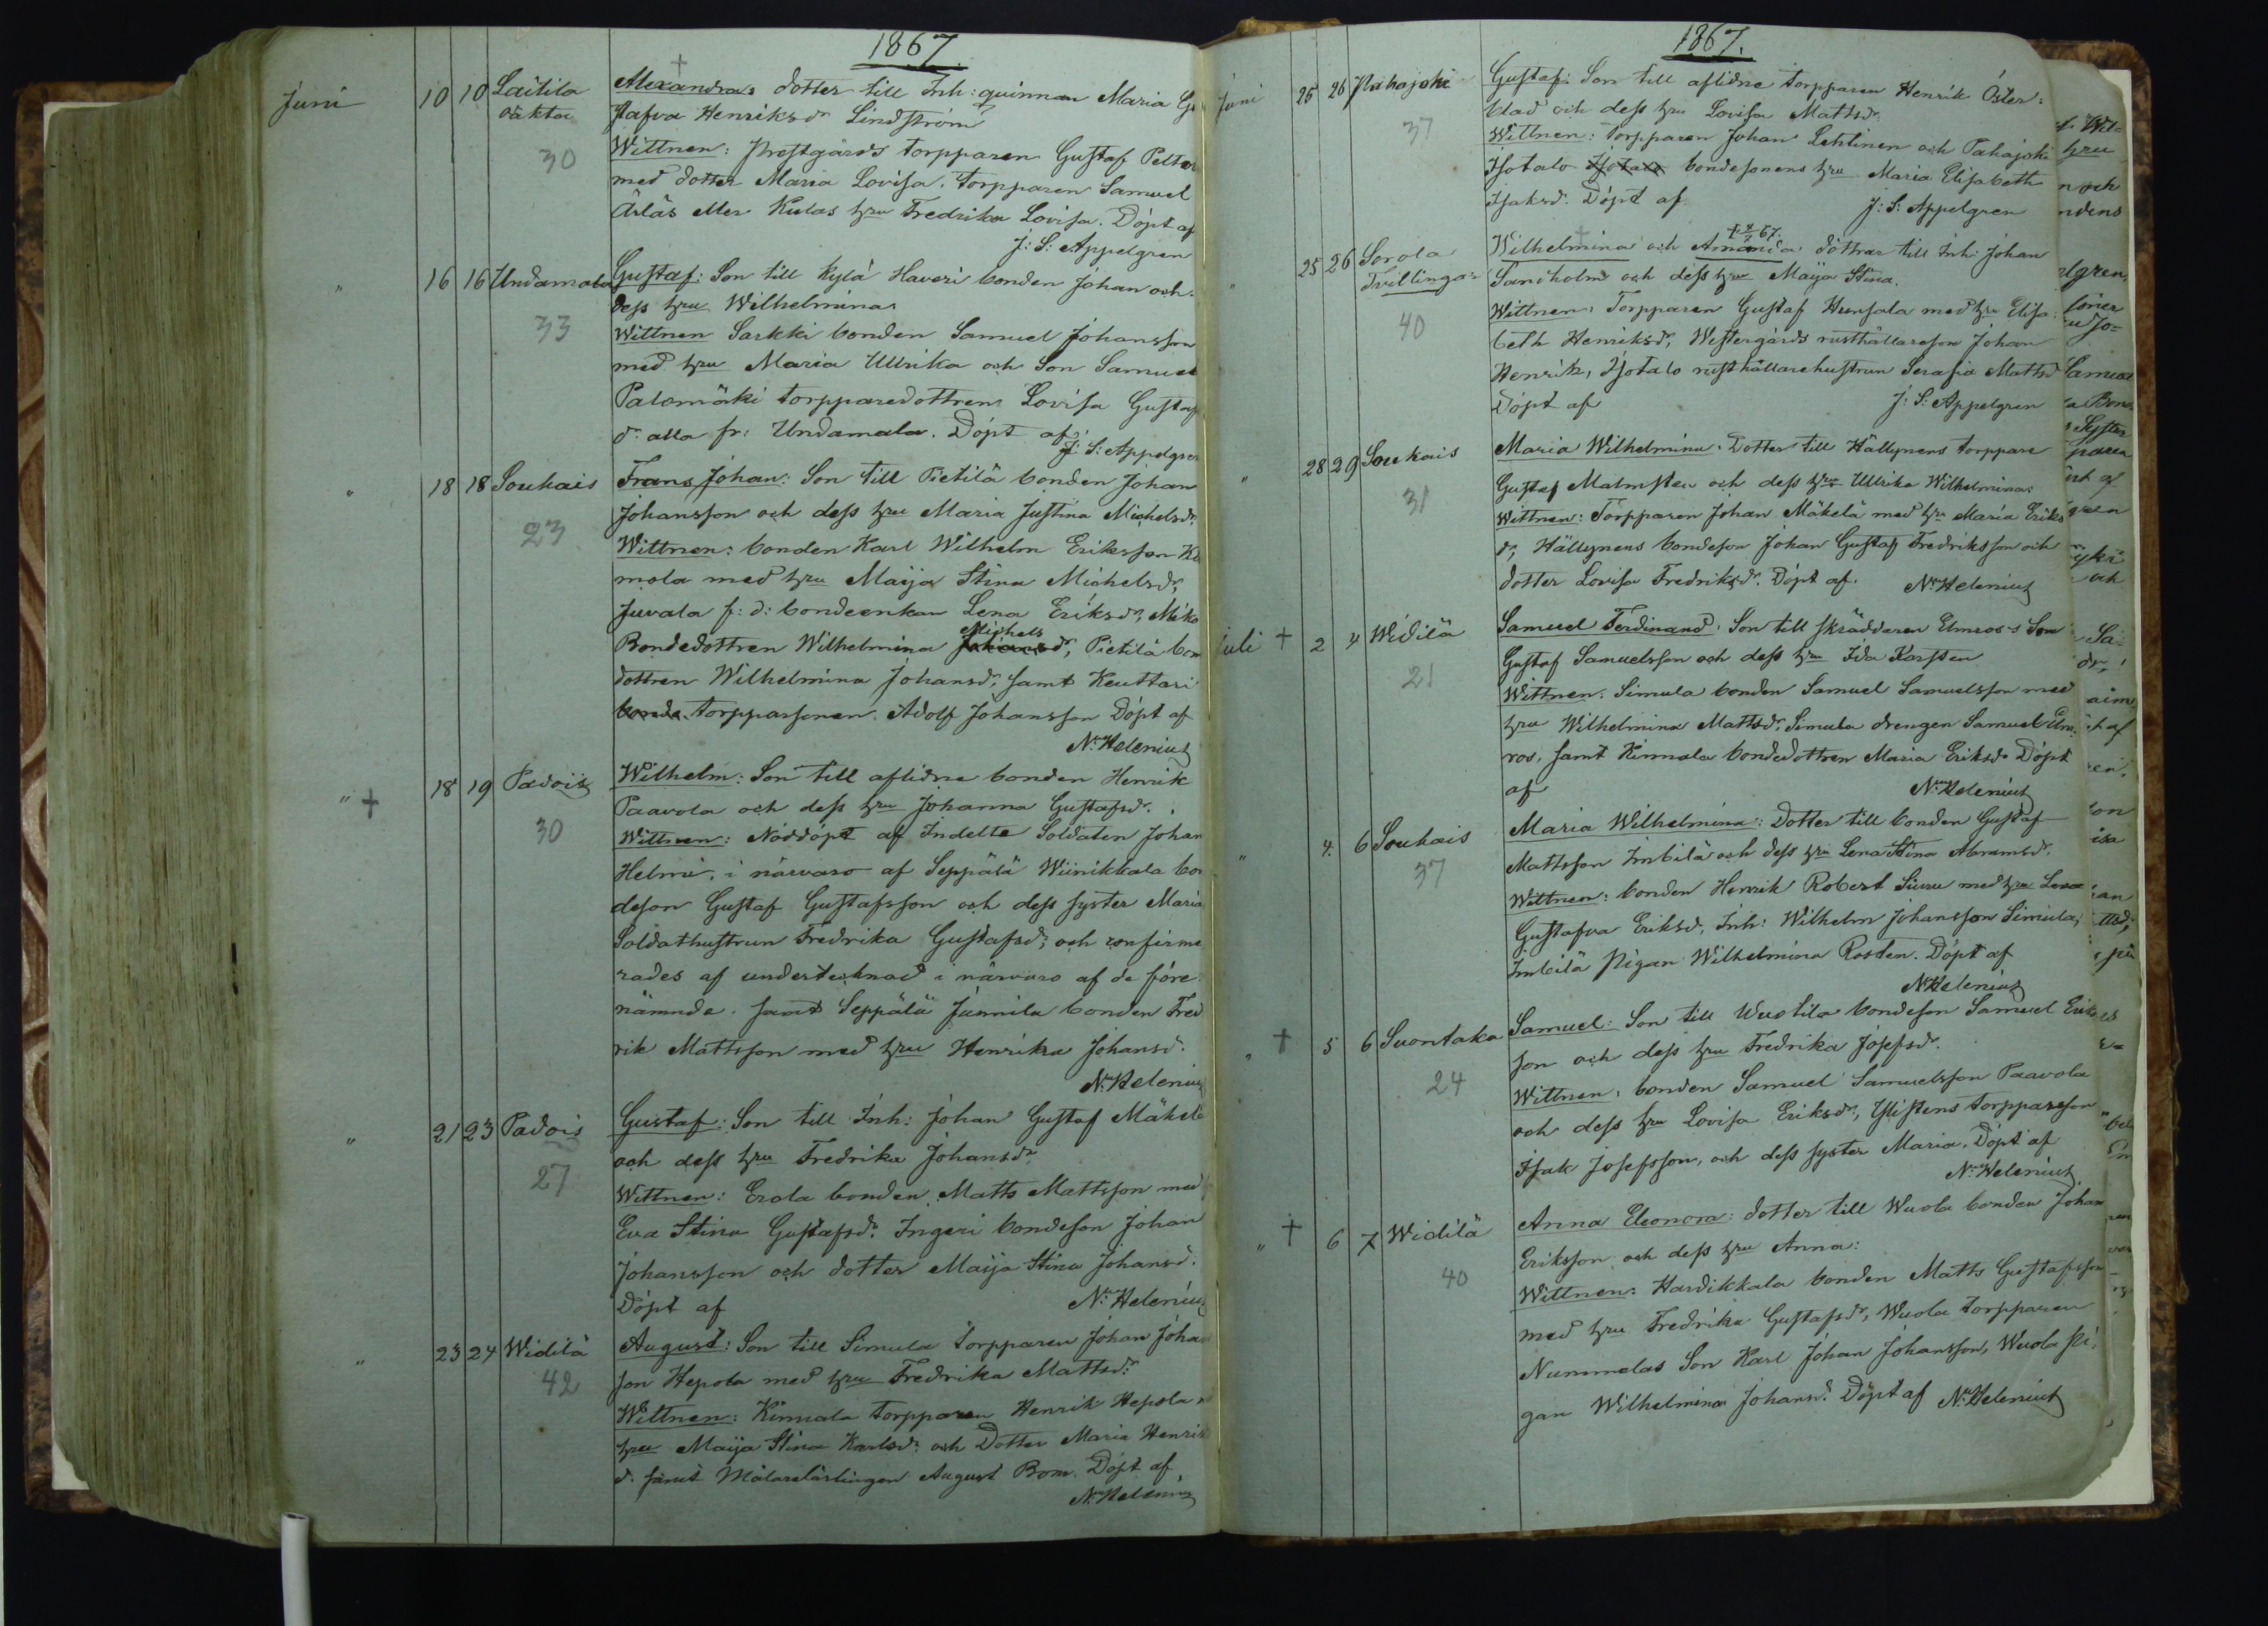 1867.
Juni 10 10 Laitila Alexandra: dotter till Inh: quinnan Maria
oäkta stafva Henriksdr Lindström
30 Wittnen: Prestgårds torpparen Gustaf
med dotter Maria Lovisa. Torpparen Samuel
eller Kulas hru Fredrika Lovisa. Döpt af
J: S: Appelgren
" 16 16 Undamala Gustaf: Son till Kylä Haveri bonden Johan och
dess hru Wilhelmina
33 Wittnen Sarkki bonden Samuel Johansson
med hru Maria Ullrika och Son Samuel
Palomäki torpparedottren Lovisa Gustaf
dr alla fr: Undamala. Döpt af
J: S: Appelgren
" 18 18 Soukais Frans Johan: Son till Pietilä bonden Johan
Johansson och dess hru Maria Justina Michelsdr
23 Wittnen: bonden Karl Wilhelm Eriksson
mola med hru Maija Stina Michelsdr,
Juvala f: d: bondeenkan Lena Eriksdr,
Bondedottren Wilhelmina Michels dr, Pietilä
dottren Wilhelmina Johansdr, samt Keuttari
bonde torpparsonen Adolf Johansson Döpt af
N. Helenius
" † 18 19 Padois Wilhelm: Son till aflidne bonden Henrik
Paavola och dess hru Johanna Gustafsdr.
30 Wittnen: Nöddöpt af Indelte Soldaten Johan
Helmi, i närvaro af Seppälä Wiinikkala
deson Gustaf Gustafsson och dess syster Maria
Soldathustrun Fredrika Gustafsdr, och confirme
rades af undertecknad i närvaro af de före
nämnde. samt Seppälä Junnila bonden Fred
rik Mattsson med hru Henrika Johansd.
N. Helenius
" 21 23 Padois Gustaf: Son till Inh: Johan Gustaf Mäkelä
och dess hru Fredrika Johansdr
27 Wittnen: Erola bonden Matts Mattsson med
Eva Stina Gustafsdr. Ingeri bondeson Johan
Johansson och dotter Maija Stina Johansd.
Döpt af N. Helenius
" 23 24 Widilä August: Son till Simula torpparen Johan Johan
son Hepola med hru Fredrika Mattsdr
42 Wittnen: Kinnala torpparen Henrik Hepola
hru Maija Stina Karlsdr och Dotter Maria Henrik
d. samt Målarelärlingen August Bom. Döpt af
N. Helenius
1867.
Juni 25 26 Pahajoki Gustaf: Son till aflidne torpparen Henrik Öster:
blad och dess hru Lovisa Mattsdr
37 Wittnen: Torpparen Johan Lehtinen och Pahajoki
Isotalo bondesonens hru Maria Elisabeth
Isaksdr. Döpt af J: S: Appelgren
" 25 26 Sorola Wilhelmina och Amanda döttrar till Inh: Johan
Tvillingar Sandholm och dess hru Maija Stina.
40 Wittnen: Torpparen Gustaf Hunsala med hru Elisa
beth Henriksdr, Westergårds rusthållareson Johan
Henrik, Isotalo rusthållarehustrun Serafia Mattsd
Döpt af J: S: Appelgren
" 28 29 Soukais Maria Wilhelmina: Dotter till Hällynens torppare
Gustaf Malmsten och dess hru Ullrika Wilhelmina:
31 Wittnen: Torpparen Johan Mäkelä med hru Maria Eriks
dr, Hällynens bondeson Johan Gustaf Fredriksson och
dotter Lovisa Fredriksdr. Döpt af. N. Helenius
Juli † 2 4 Widilä Samuel Ferdinand: Son till skräddaren Elmros's Son
Gustaf Samuelsson och dess hru Ida Karsten
21 Wittnen: Simula bonden Samuel Samuelsson med
hru Wilhelmina Mattsdr, Simula drengen Samuel Elm:
ros, samt Kinnala bondedottren Maria Eriksdr Döpt
af N. Helenius
" 4. 6 Soukais Maria Wilhelmina: Dotter till bonden Gustaf
Mattsson Imbilä och dess hru Lena Stina Abramsd.
37 Wittnen: bonden Henrik Robert Siuru med hru Lena
Gustafva Eriksd, Inh: Wilhelm Johansson Simula,
Imbilä pigan Wilhelmina Rosten. Döpt af
N. Helenius
" † 5 6 Suontaka Samuel: Son till Wuotila bondeson Samuel Eriks
son och dess hru Fredrika Josefsdr.
24 Wittnen: bonden Samuel Samuelsson Paavola
och dess hru Lovisa Eriksdr, torppareson
Isak Josefsson, och dess syster Maria. Döpt af
N. Helenius
" † 6 7 Widilä Anna Eleonora: dotter till Wuola bonden Johan
Eriksson och dess hru Anna:
40 Wittnen: Hardikkala bonden Matts Gustafsson
med hru Fredrika Gustafsdr, Wuola torpparen
Nummelas Son Karl Johan Johansson, Wuola pi,
gan Wilhelmina Johansd. Döpt af N. Helenius